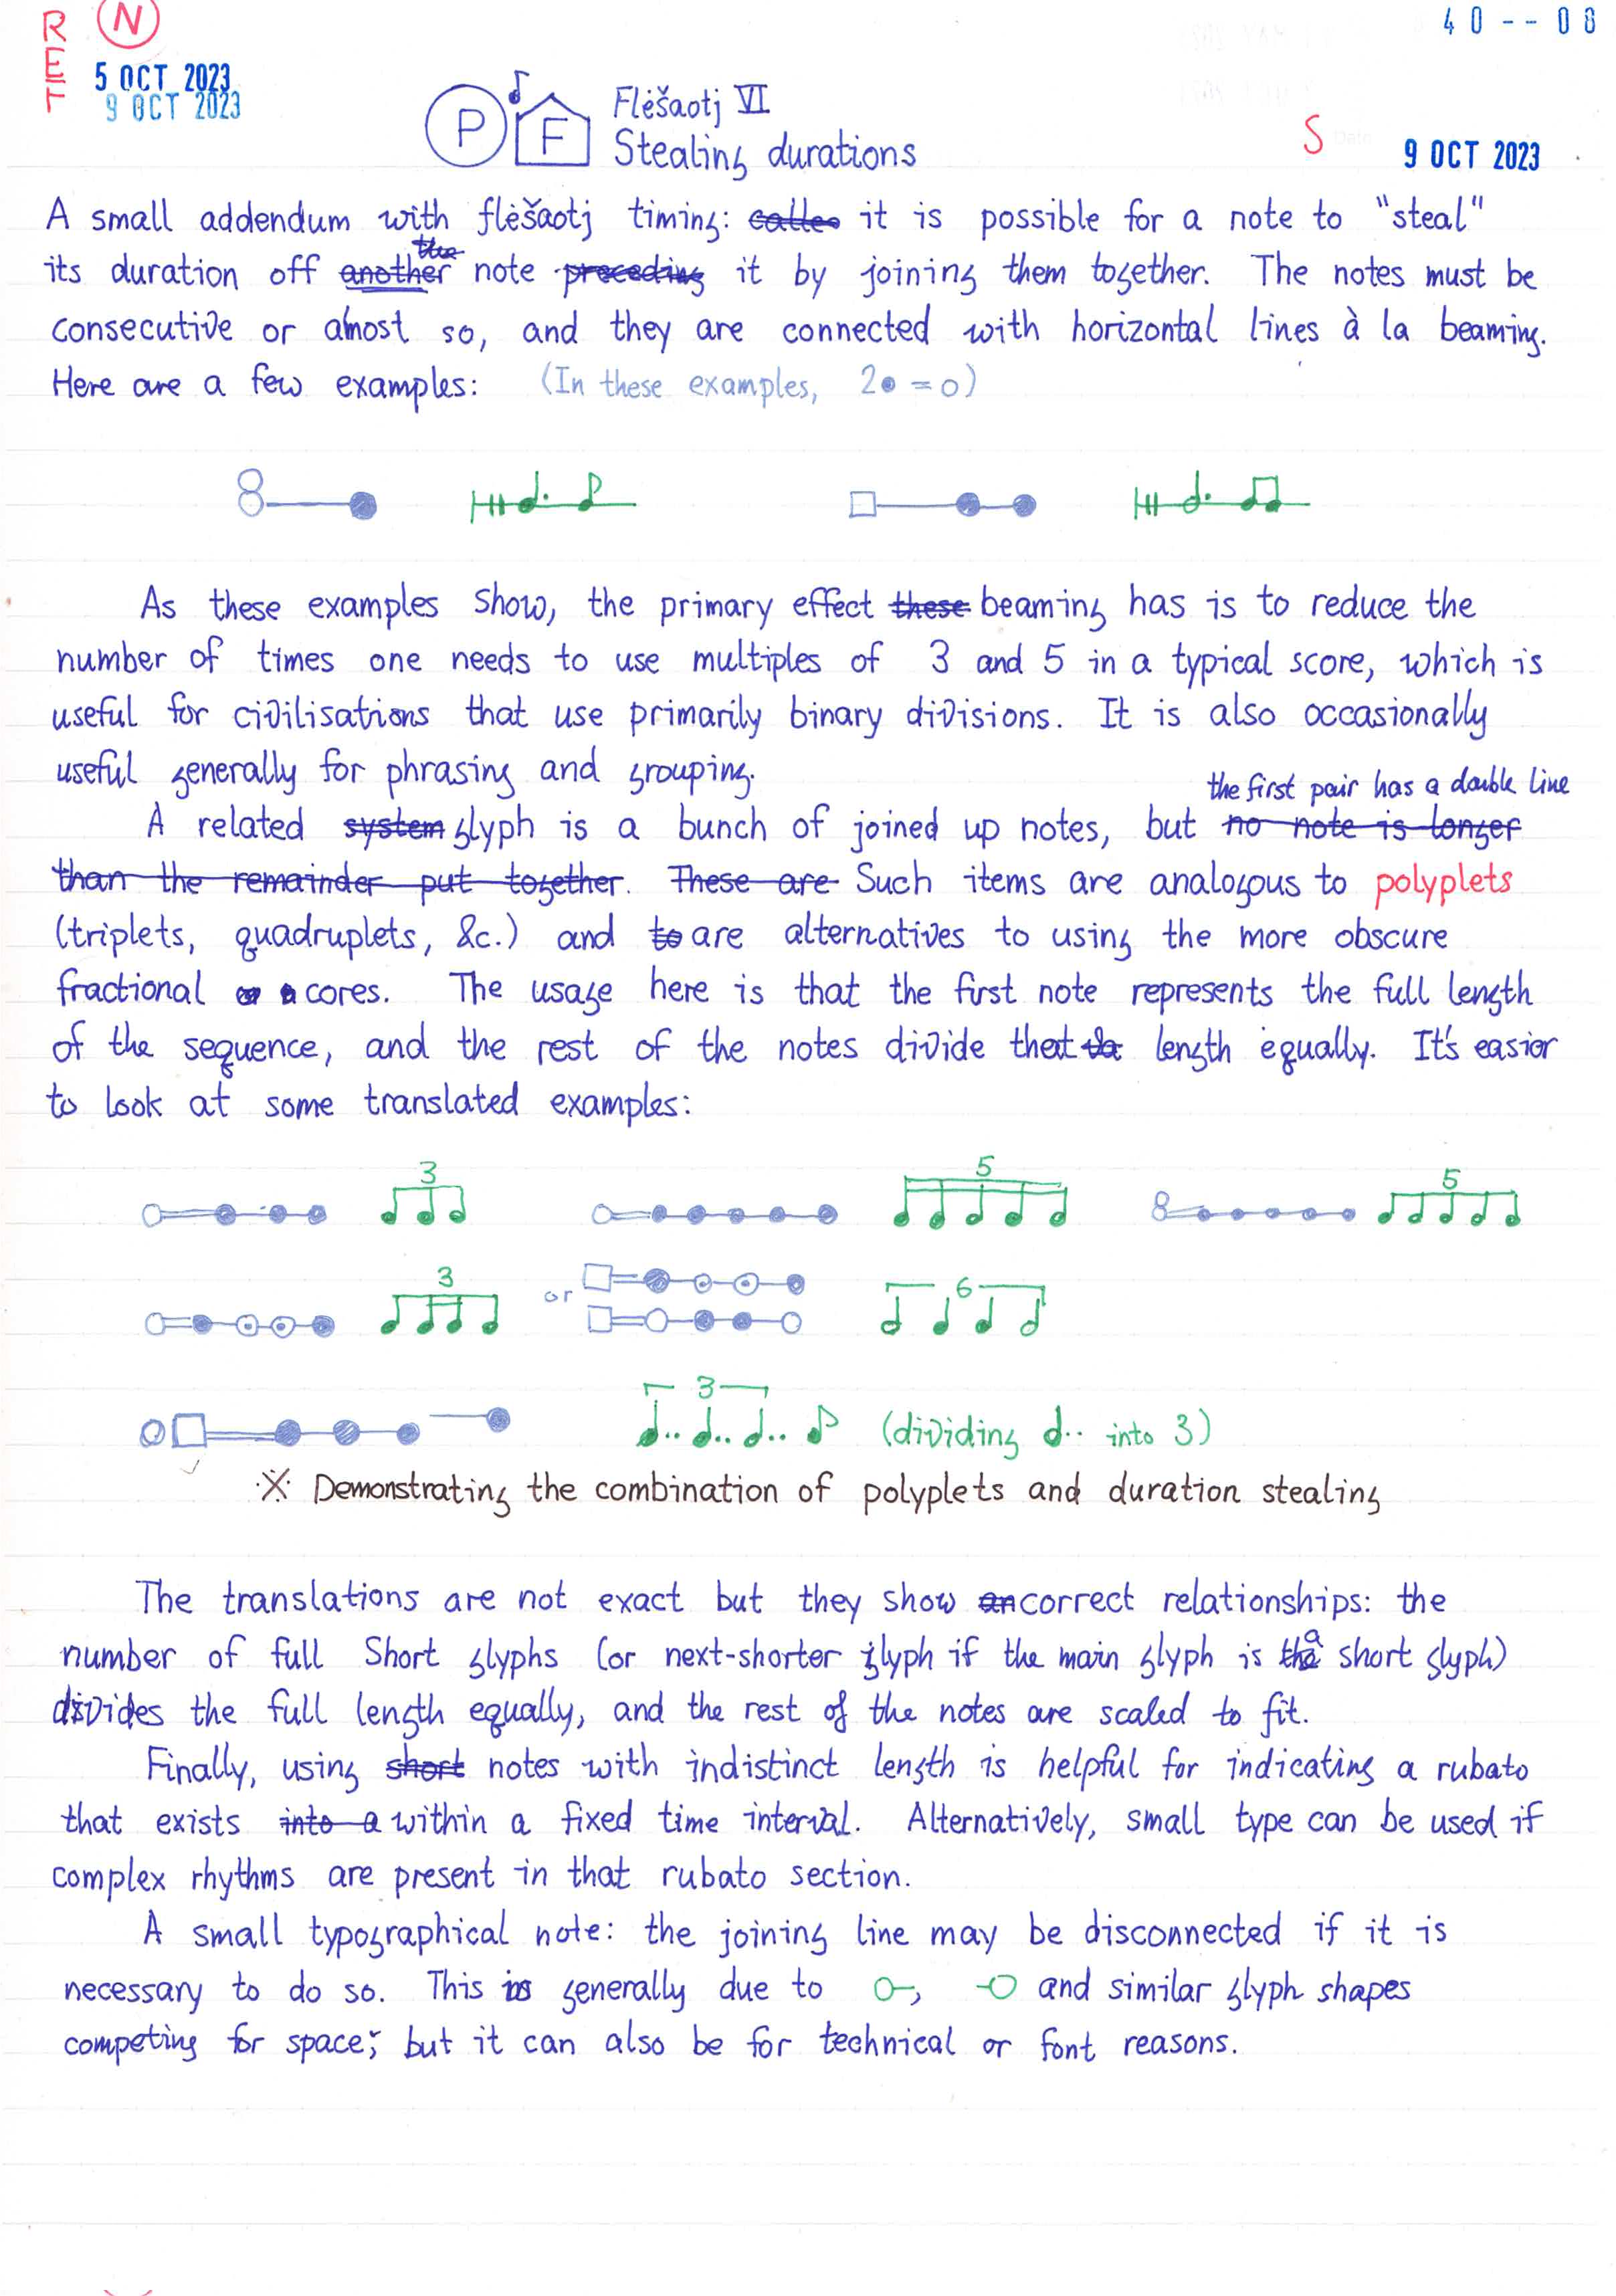 REF N
40--08
5 OCT 2023
9 OCT 2023
P F Flėšaotj VI
Stealing durations
S 9 OCT 2023
A small addendum with flėšaotj timing: it is possible for a note to "steal"
its duration off another note it by joining them together. The notes must be
consecutive or almost so, and they are connected with horizontal lines à la beaming.
Here are a few examples: (In these examples, 2● = o)
As these examples show, the primary effect beaming has is to reduce the
number of times one needs to use multiples of 3 and 5 in a typical score, which is
useful for civilisations that use primarily binary divisions. It is also occasionally
useful generally for phrasing and grouping.
A related glyph is a bunch of joined up notes, but the first pair has a double line
Such items are analogous to polyplets
(triplets, quadruplets, &c.) and are alternatives to using the more obscure
fractional cores. The usage here is that the first note represents the full length
of the sequence, and the rest of the notes divide that length equally. It's easier
to look at some translated examples:
3 5 5
3 or 6
3 (dividing 𝅗𝅥.. into 3)
※ Demonstrating the combination of polyplets and duration stealing
The translations are not exact but they show correct relationships: the
number of full Short glyphs (or next-shorter glyph if the main glyph is a short glyph)
divides the full length equally, and the rest of the notes are scaled to fit.
Finally, using notes with indistinct length is helpful for indicating a rubato
that exists within a fixed time interval. Alternatively, small type can be used if
complex rhythms are present in that rubato section.
A small typographical note: the joining line may be disconnected if it is
necessary to do so. This is generally due to o-, -o and similar glyph shapes
competing for space; but it can also be for technical or font reasons.